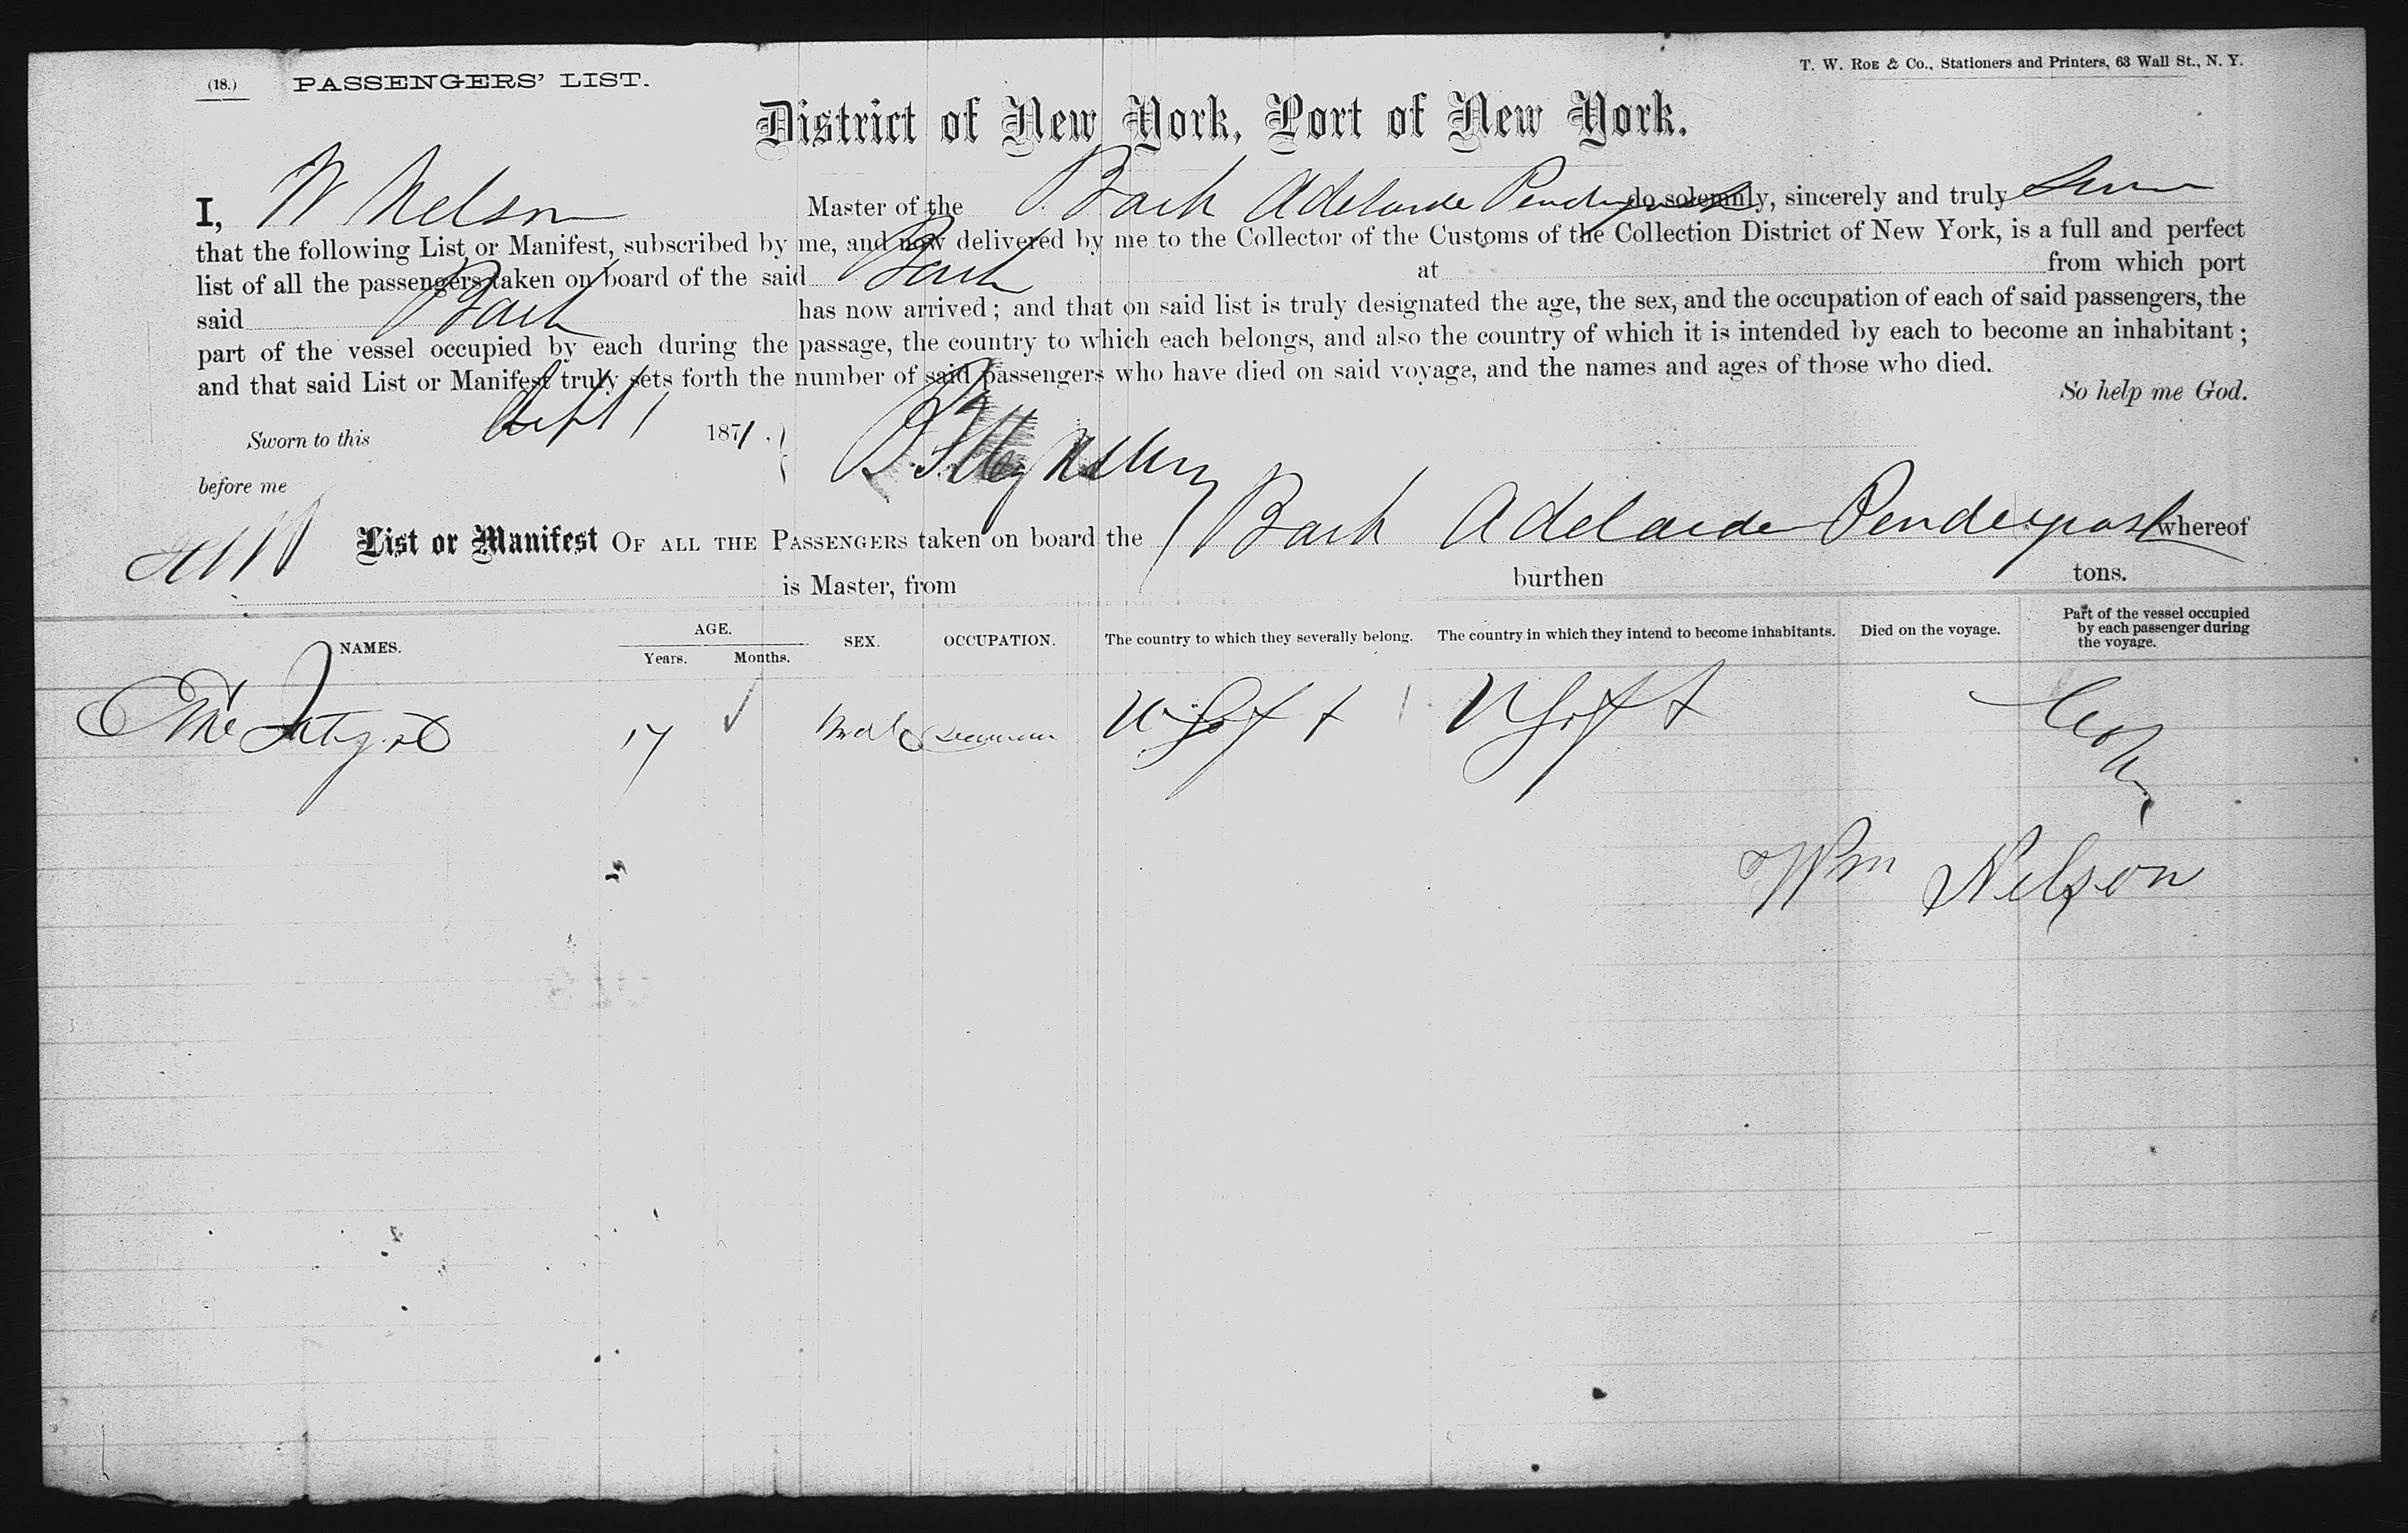 (18.) PASSENGERS' LIST.
T. W. Roe & Co., Stationers and Printers, 63 Wall St., N. Y.
District of New York, Port of New York.
I, W Nelson Master of the Bark Adelaide Pendergast do solemnly, sincerely and truly swear
that the following List or Manifest, subscribed by me, and now delivered by me to the Collector of the Customs of the Collection District of New York, is a full and perfect
list of all the passengers taken on board of the said Bark at from which port
said Bark has now arrived; and that on said list is truly designated the age, the sex, and the occupation of each of said passengers, the
part of the vessel occupied by each during the passage, the country to which each belongs, and also the country of which it is intended by each to become an inhabitant;
and that said List or Manifest truly sets forth the number of said passengers who have died on said voyage, and the names and ages of those who died.
So help me God.
Sworn to this Sept 1 1871.
before me
List or Manifest OF ALL THE PASSENGERS taken on board the Bark Adelaide Pendergast whereof
is Master, from burthen tons.
NAMES. AGE. Years. Months. SEX. OCCUPATION. The country to which they severally belong. The country in which they intend to become inhabitants. Died on the voyage. Part of the vessel occupied by each passenger during the voyage.
17 male seaman
Wm Nelson